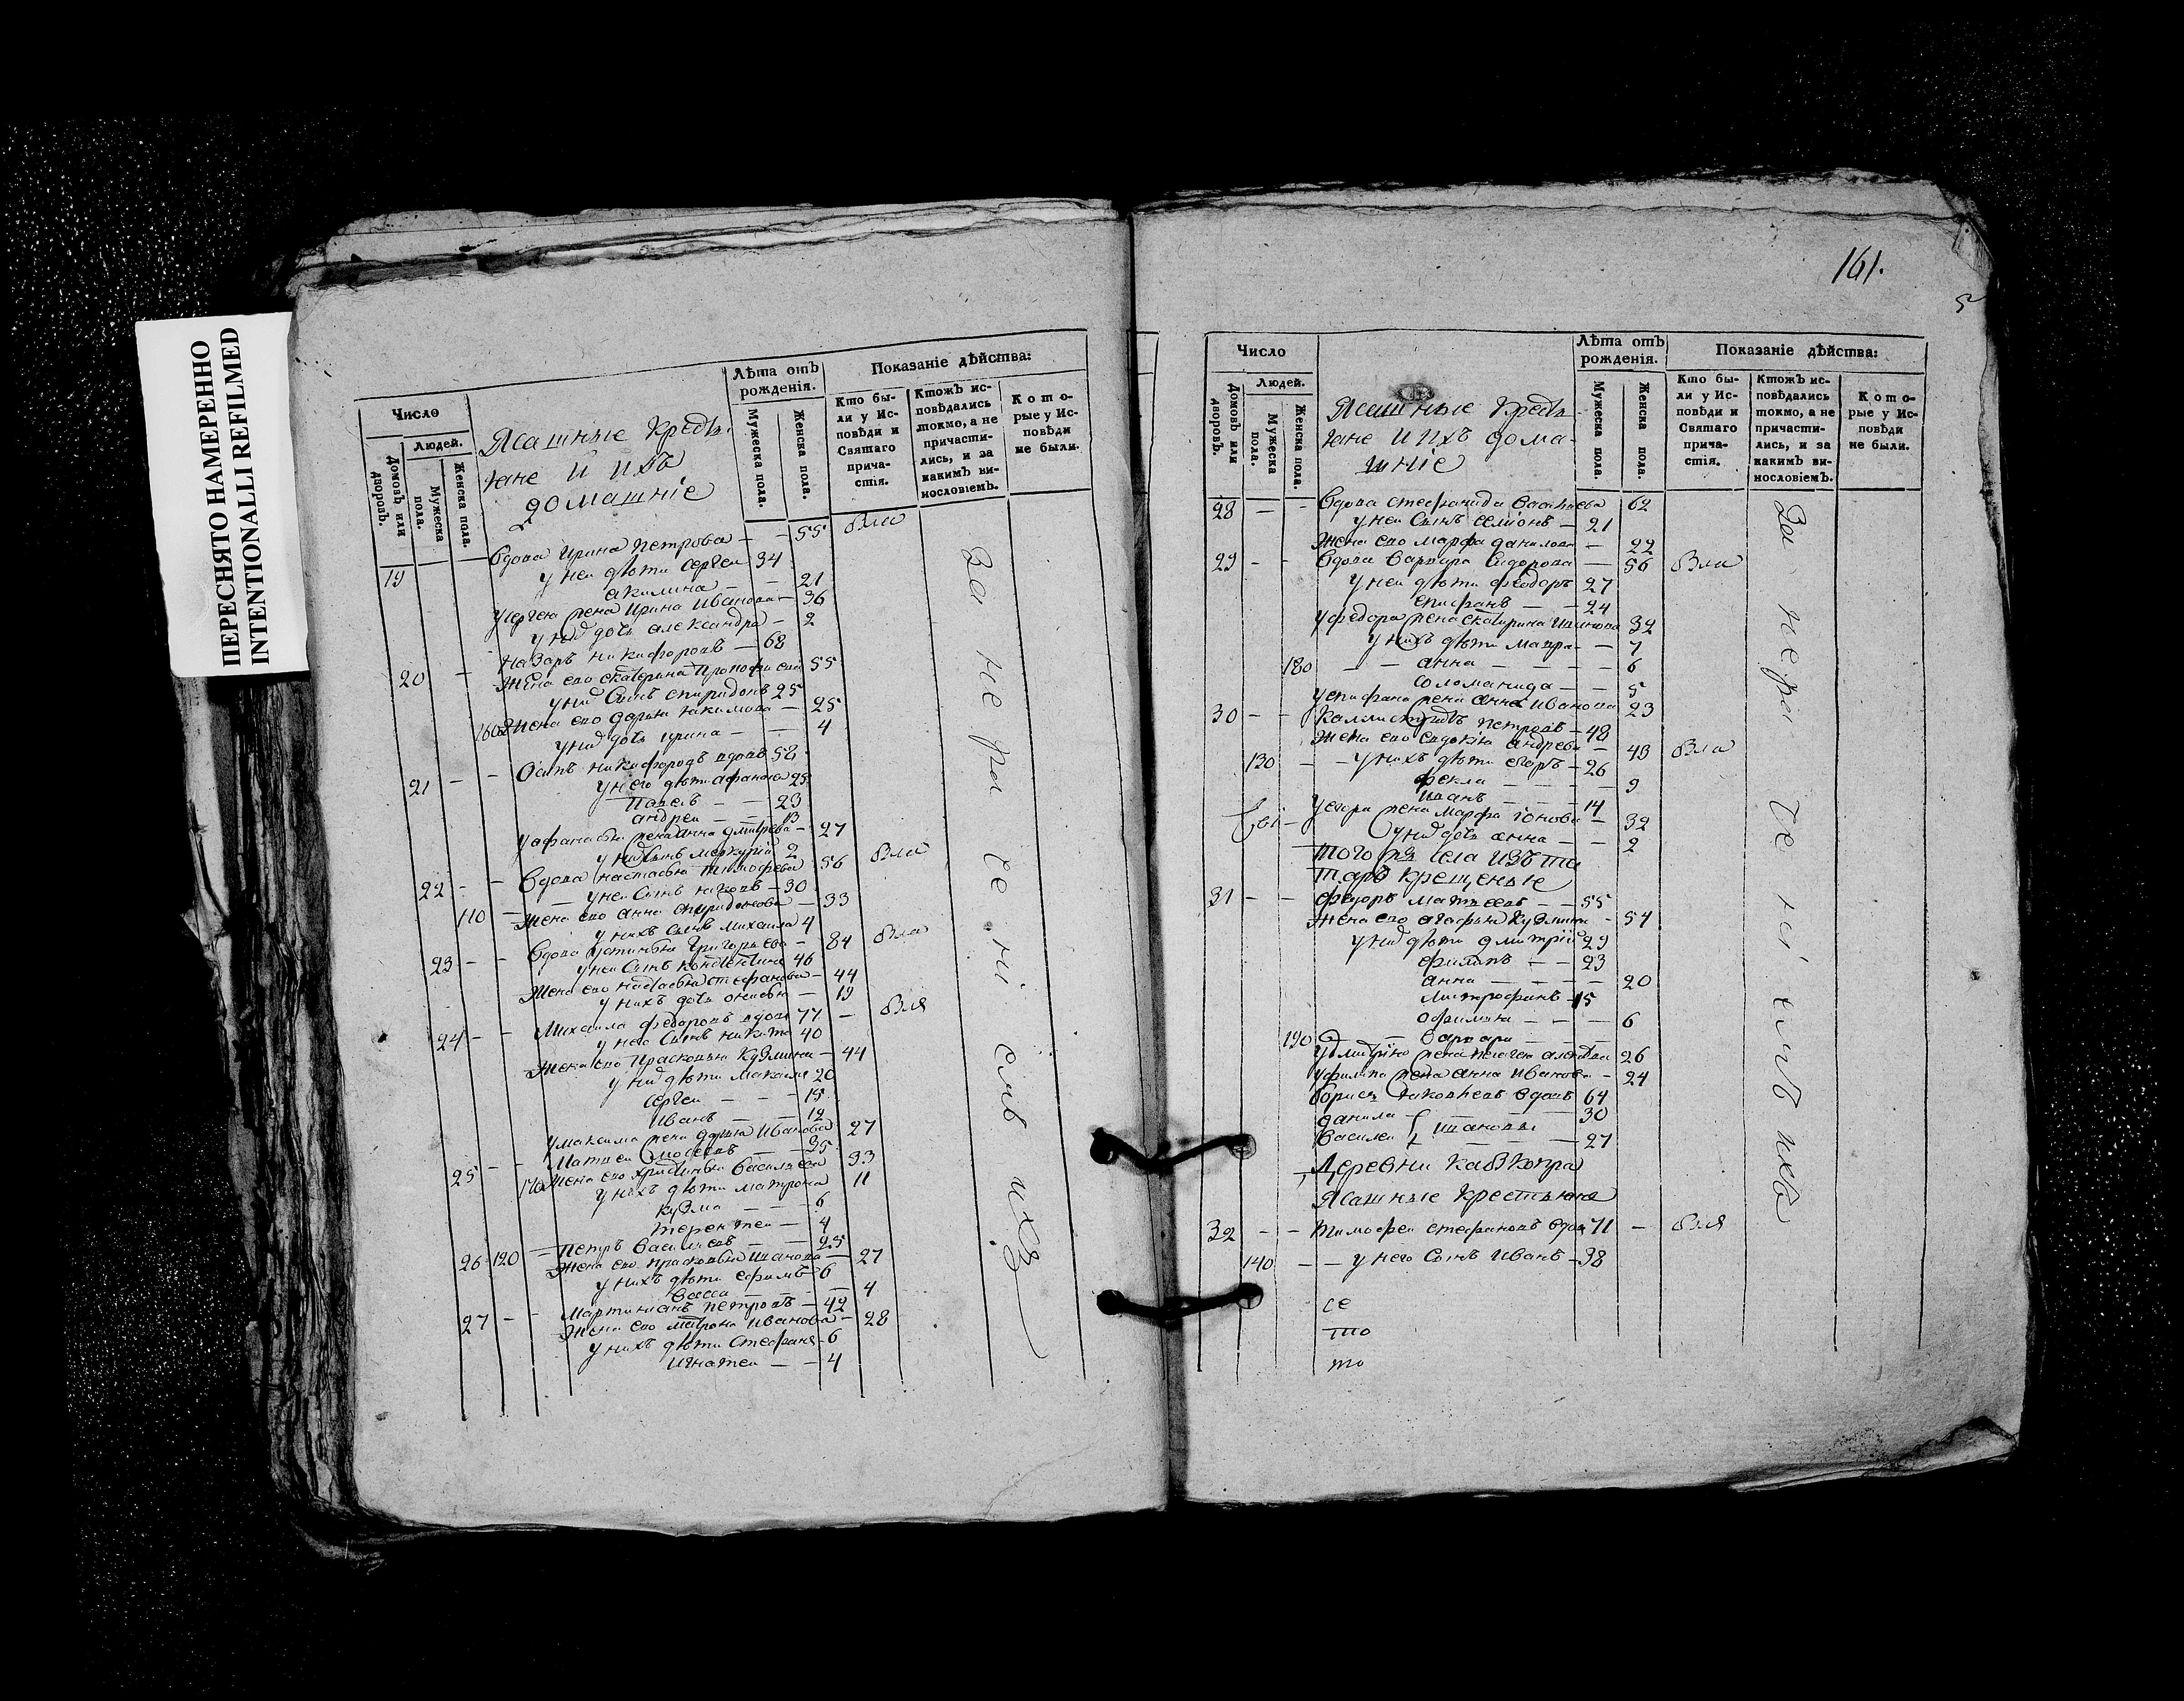 ПЕРЕСНЯТО НАМЕРЕННО
INTENTIONALLI REFILMED
Число
Людей.
Домовъ или дворовъ.
Мужеска пола.
Женска пола.
Ясашные кресть
яне и ихъ
домашніе
Лѣта отъ рожденія.
Мужеска пола.
Женска пола.
Показаніе дѣйства:
Кто были у Исповѣди и Святаго причастія.
Ктожъ исповѣдались токмо, а не причастились, и за какимъ винословіемъ.
Которые у Исповѣди не были.
19 — — Вдова Ирина Петрова — — 55 Была
у неи дѣти Сергеи 34
акилина — — 21
у Сергея жена Ирина Иванова — 36
у них дочь александра — 2
20 — Назаръ никифоровъ — 68
Жена ево екатерина Прокофиева 55
у них Сынъ спиридонъ 25
Жена ево дарья якимова — 25
у них дочь ирина — — 4
21 — — Осипъ никифоровъ вдовъ 58
у него дѣти афанасеи 29
Павелъ — — 23
андреи — — 13
у афанасья жена анна дмитрева — 27
у них Сынъ меркурій 2
22 — — Вдова настасья тимофеева 56 Была
— у неи Сынъ — 30
110 — Жена ево анна спиридонова — 33
у нихъ сынъ михаила 4
23 — — Вдова устинья Григорьева — 84 Была
у неи Сынъ константинъ 46
Жена ево настасья стефанова — 44
у нихъ дочь — 19
24 — — Михаила федоровъ вдовъ 77 — Былъ
у него Сынъ никита 40
Жена ево Прасковья Кузмина — 44
у них дѣти Максимъ 20
Сергеи — — — 15
Иванъ — — 12
у максима жена дарья Иванова 27
25 — — Матвеи Моѵсеевъ — 35
Жена ево христинья васильева 33
у нихъ дѣти матрона 11
кузма — — — 6
терентеи — 4
26 120 — Петръ Васильевъ — — 25
Жена ево прасковья Иванова — 27
у нихъ дѣти ефимъ 6
Васса — — — 4
27 — — Мартиніанъ петровъ — 42
Жена ево матрона Иванова — 28
у нихъ дѣти Стефанъ 6
игнатеи — — 4
За не ра че ні емъ ихъ
161.
5
Число
Людей.
Домовъ или дворовъ.
Мужеска пола.
Женска пола.
Ясашные кресть
яне и ихъ дома
шніе
Лѣта отъ рожденія.
Мужеска пола.
Женска пола.
Показаніе дѣйства:
Кто были у Исповѣди и Святаго причастія.
Ктожъ исповѣдались токмо, а не причастились, и за какимъ винословіемъ.
Которые у Исповѣди не были.
28 — — Вдова стефанида Васильева 62
у неи Сынъ семіонъ — 21
Жена ево марфа данилова — 22
29 — — Вдова варвара Сидорова — 56 Была
у неи дѣти феодоръ 27
епифанъ — — 24
у федора жена екатерина Иванова 32
у нихъ дѣти мавра — — 7
180 — — анна — — — — 6
соломанида — — 5
у епифана жена анна Иванова 23
30 — — Каллистратъ петровъ — 48
Жена ево евдокія андреева — 43 Была
130 — — у нихъ дѣти егоръ — 26
фекла — — — — 9
иванъ — — — 14
у егора жена марфа іонова — 32
у них дочь анна — — 2
того жъ села изъ та
таръ крещеные
31 — — матвеевъ — — 55
Жена ево агафья Кузмина — 54
у них дѣти дмитрій 29
филипъ — — 23
анна — — — — 20
митрофанъ — 15
офимья — — — 6
190 — варвара — —
у дмитрія жена 26
у филипа жена анна иванова — 24
борисъ вдовъ 64
данила — Ивановы — 30
василеи — — — 27
Деревни кабкопра
Ясашные Крестьяня
32 — — Тимофеи стефановъ вдовъ 71 — Былъ
140 — — у него Сынъ Иванъ — 38
се
то
то
За нера че ні емъ ихъ